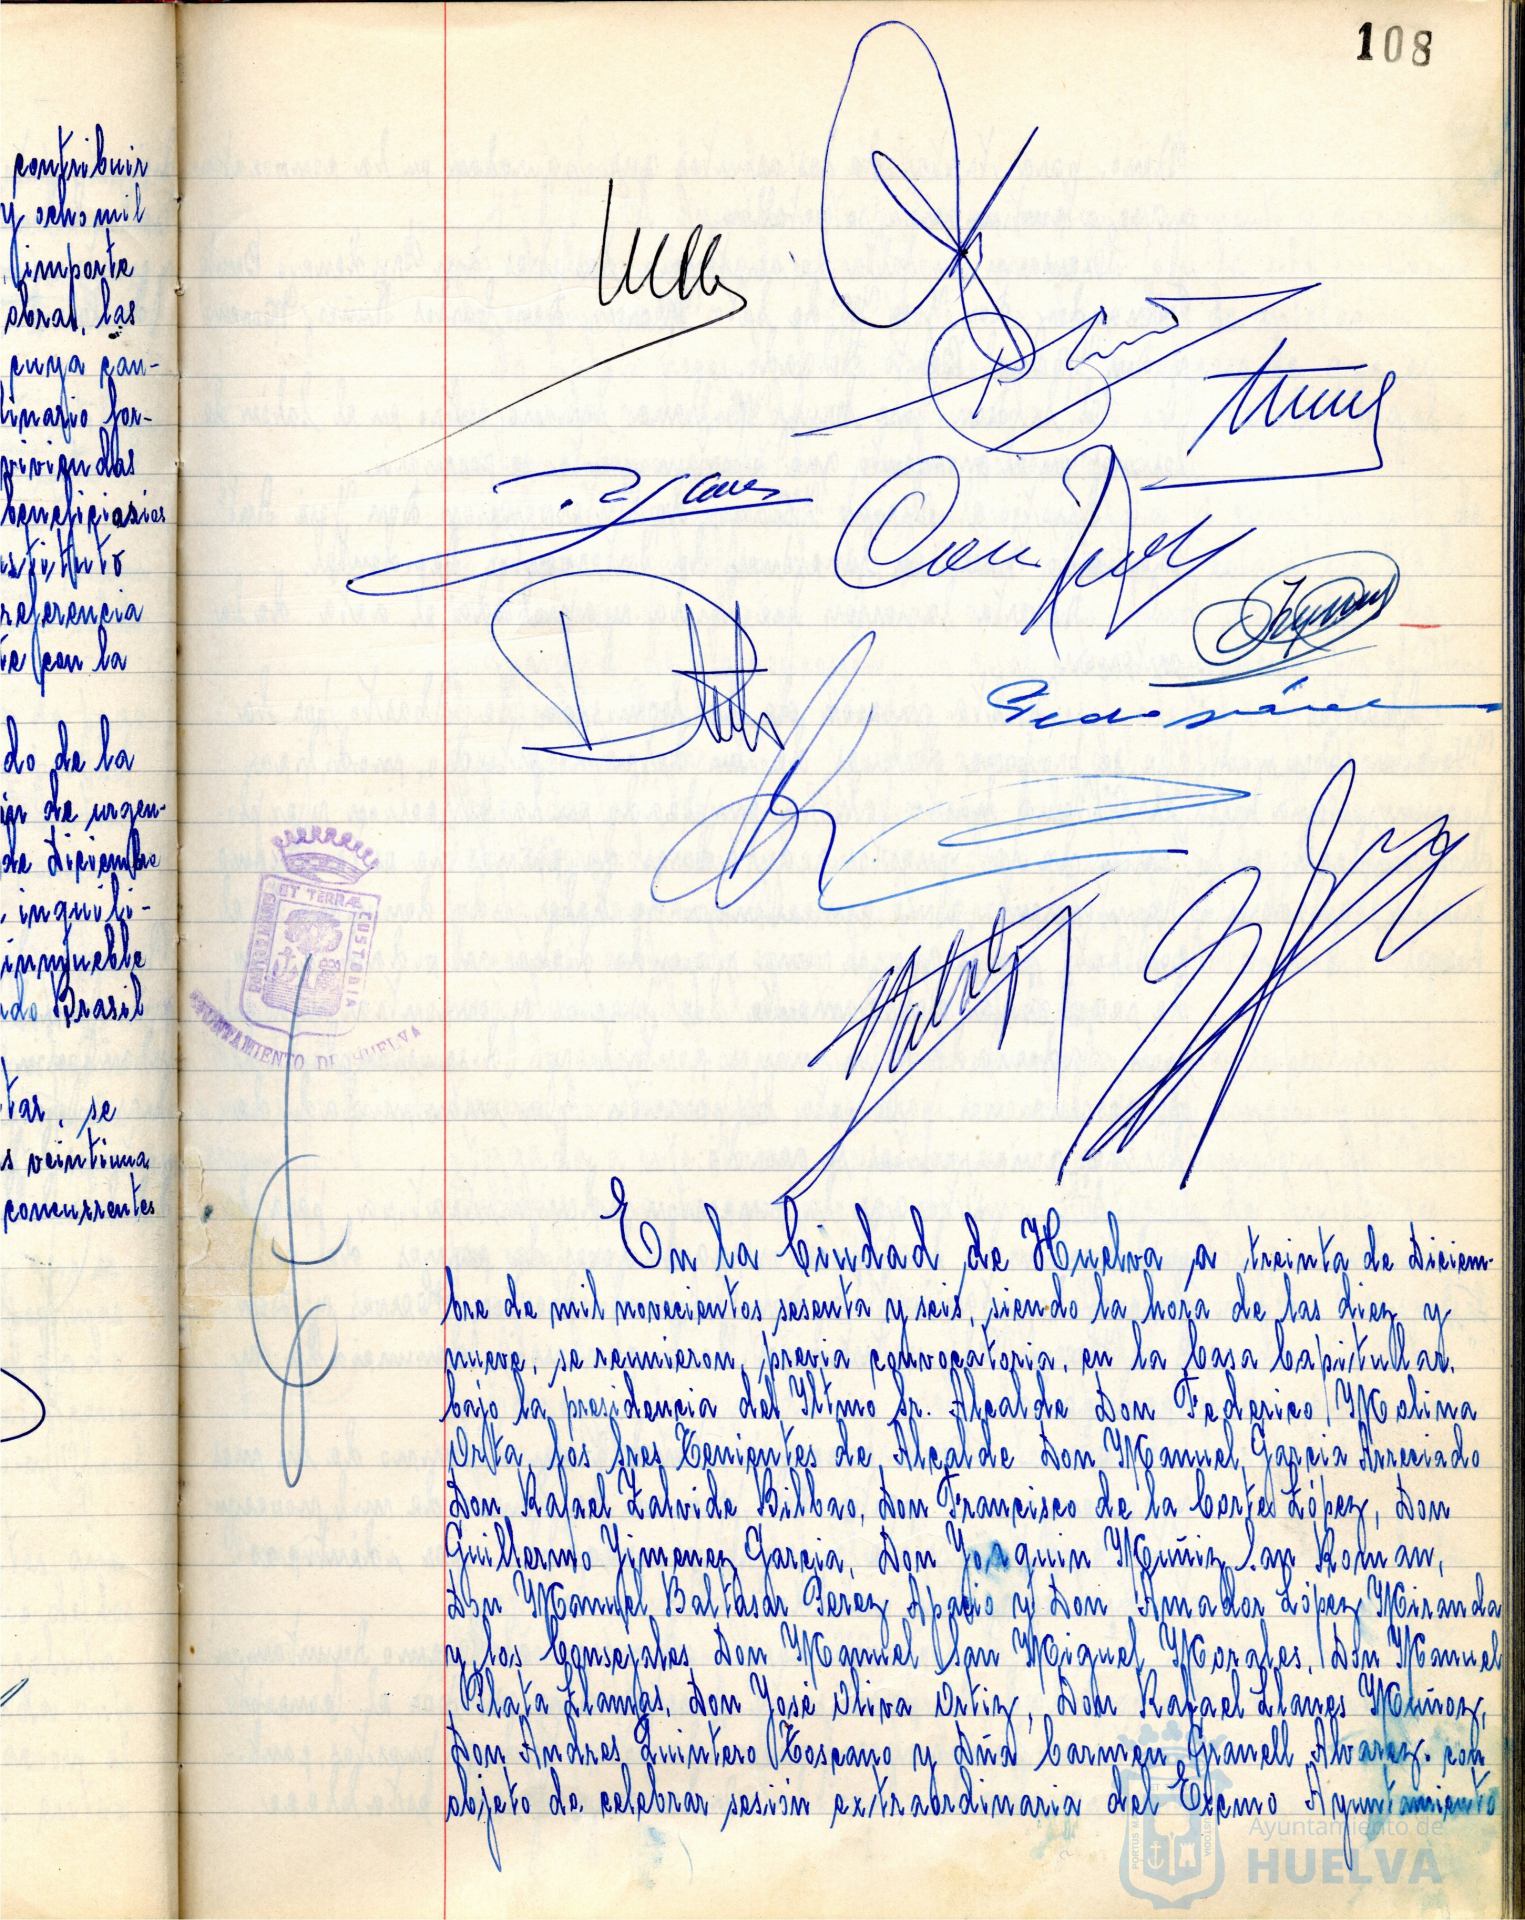 108
contribuir
y ocho mil
importe
obras, las
cuya can-
linario for-
viviendas
beneficiarios
referencia
te con la
do de la
de urgen-
de Diciembre
inquili-
inmueble
do Brasil
tar, se
s veintiuna
concurrentes
PORTUS MARIS ET TERRÆ CUSTODIA
AYUNTAMIENTO DE HUELVA
En la Ciudad de Huelva a treinta de Diciem-
bre de mil novecientos sesenta y seis, siendo la hora de las diez y
nueve, se reunieron, previa convocatoria, en la Casa Capitular,
bajo la presidencia del Iltmo Sr. Alcalde Don Federico Molina
Orta, los Sres Tenientes de Alcalde Don Manuel Garcia Arreciado
Don Rafael Zalvide Bilbao, Don Francisco de la Corte López, Don
Guillermo Jimenez Garcia, Don Joaquin Muñiz San Roman,
Don Manuel Baltasar Perez Apario y Don Amador López Miranda
y los Consejales Don Manuel San Miguel Morales, Don Manuel
Plata Llamas, Don José Oliva Ortiz, Don Rafael Llanes Muñoz,
Don Andres Quintero Toscano y Dña Carmen Granell Alvarez. con
objeto de celebrar sesión extraordinaria del Excmo Ayuntamiento
Ayuntamiento de
HUELVA